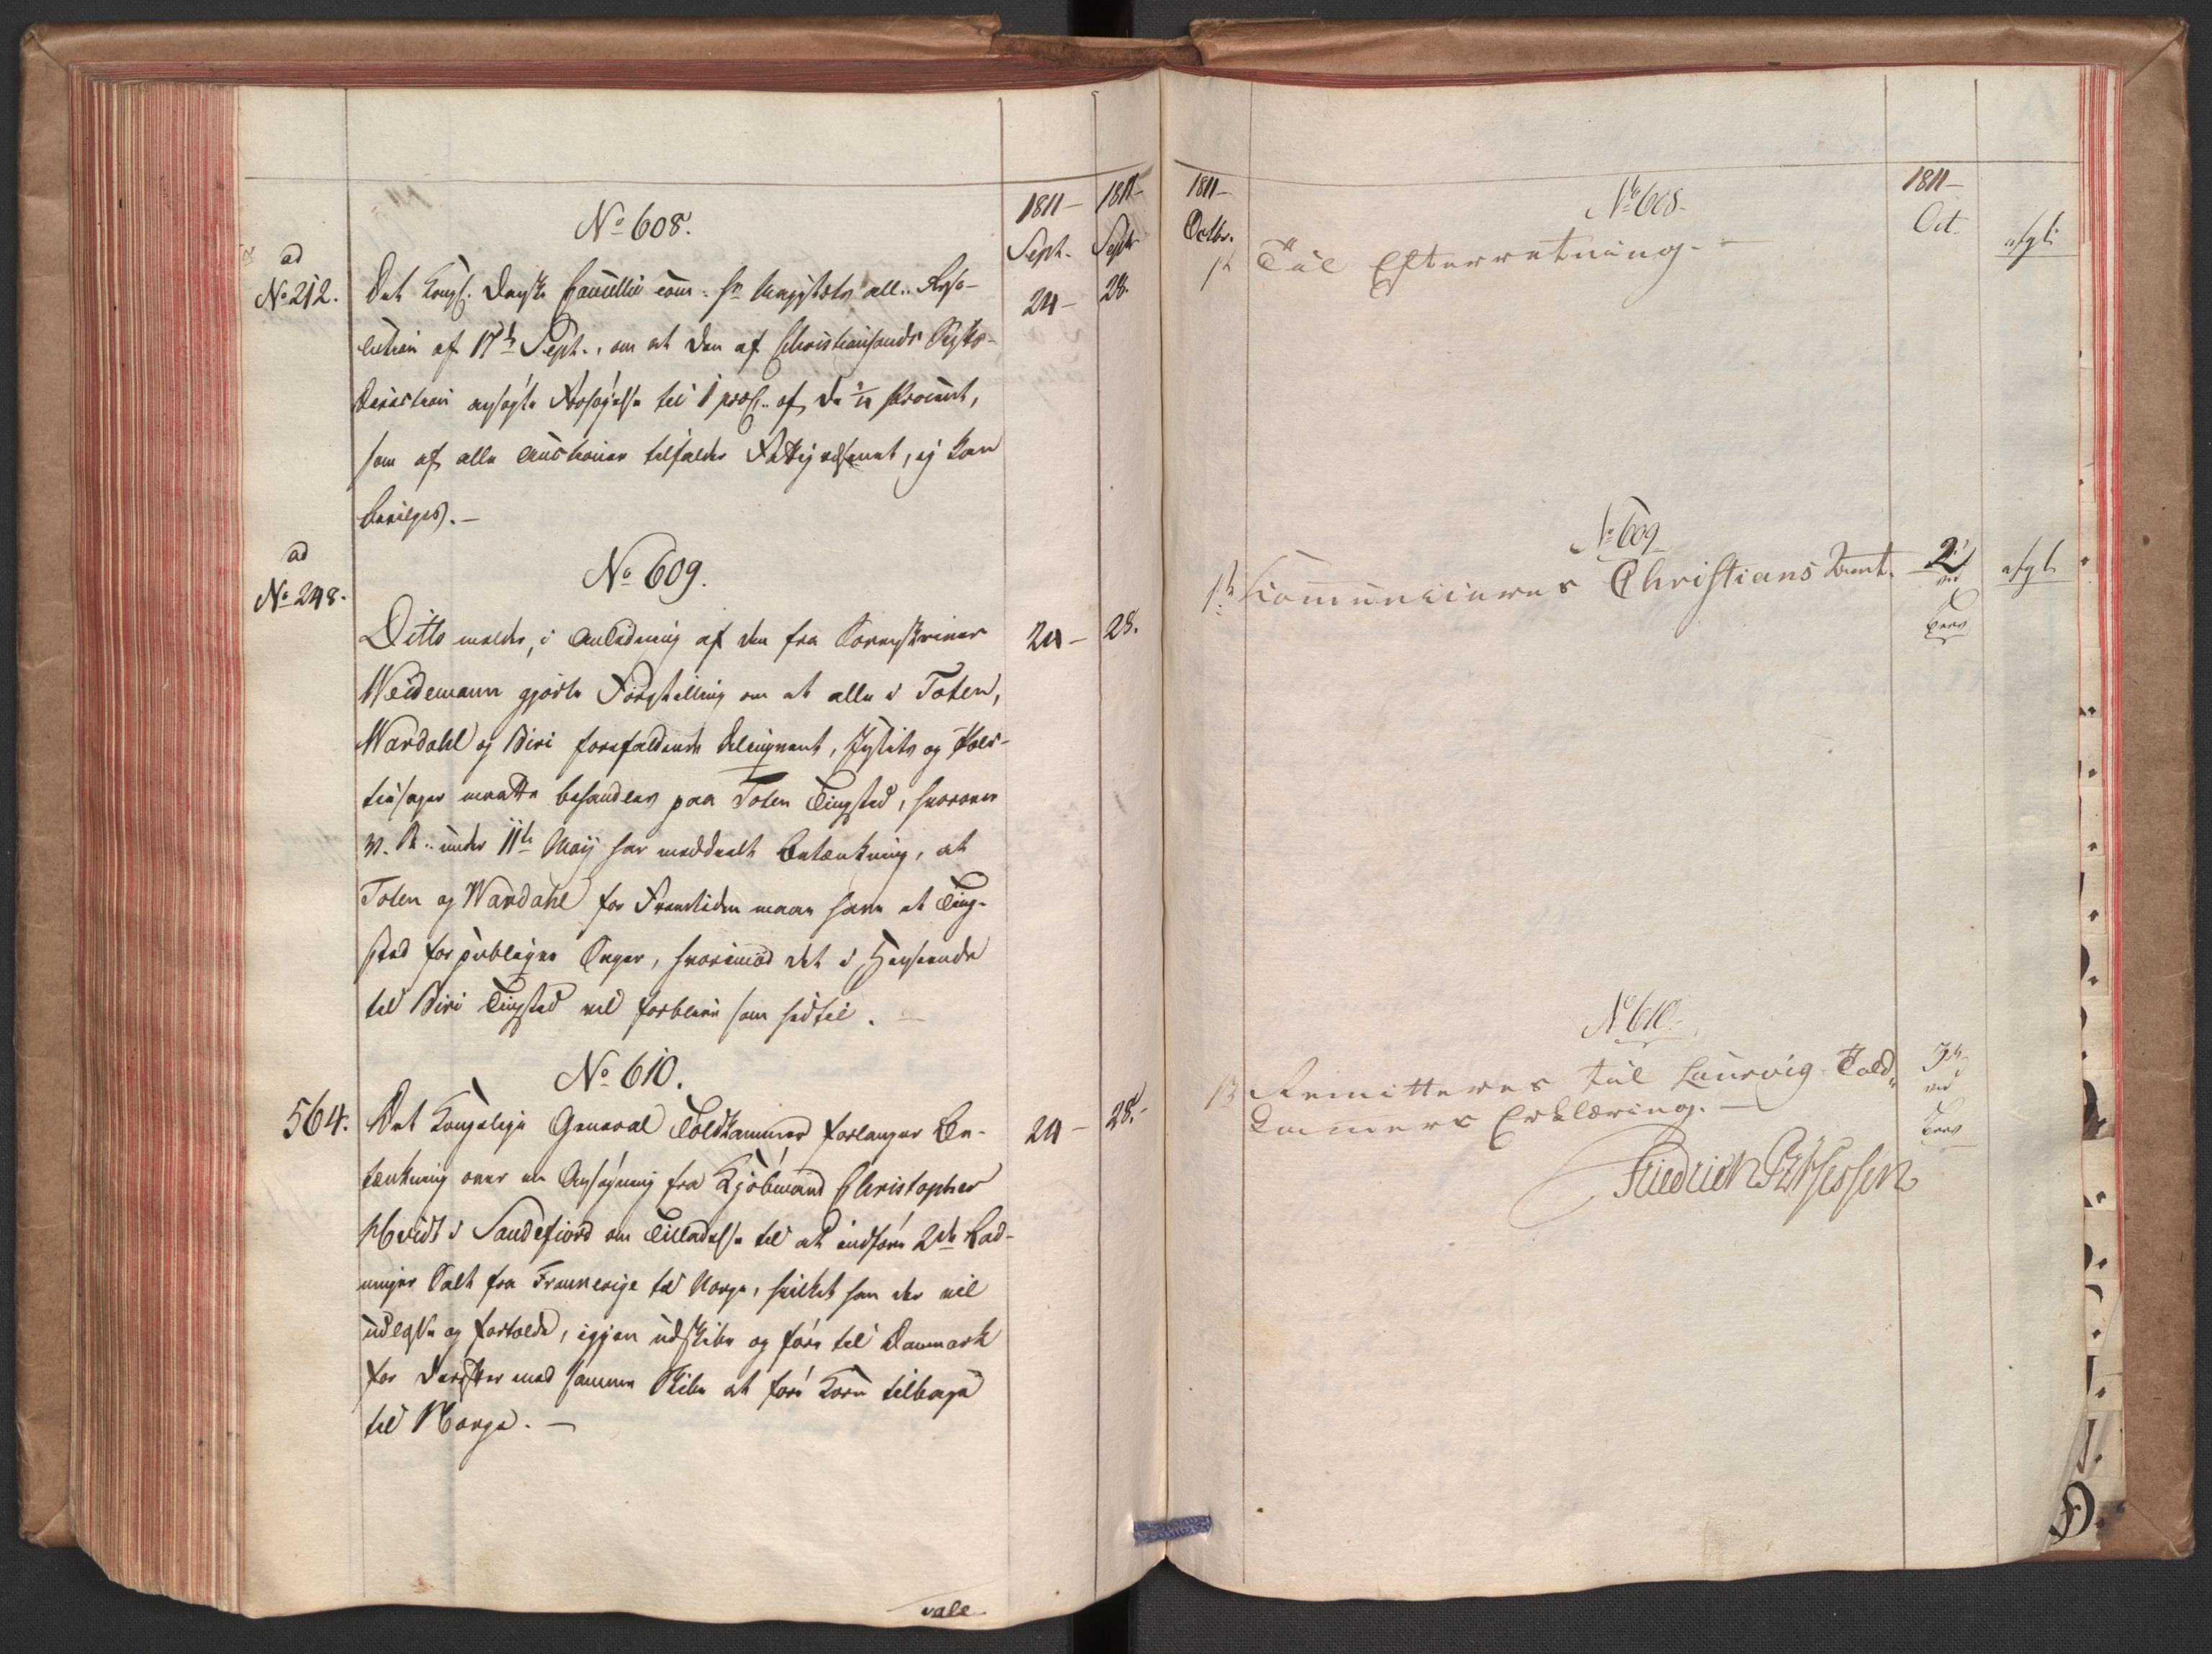 1811 – 1811 –
Sept. – Septr
No 608.
ad
No 212. Det Kongl. Danske Cancellie com: Hs Majestæts all:. Reso- 24 – 28.
lution af 17de Sept., om at den af Christiansands Stifts-
direction ansøgte Forhøjelse til 1 proC:. af de ½ Procent,
som af alle Auctioner tilfalder Fattigvæsenet, ej kan
bevilges. –
ad
No 248.
No 609.
Ditto melder, i Anledning af den fra Sorenskriver 24 – 28.
Weidemann gjorte Forestilling om at alle i Toten,
Wardahl og Biri forefaldende Delinqvent, Justits og Poli-
tiesager maatte behandles paa Toten Tingsted, hvorover
under 11te Maij har meddeelt Betænkning, at
Toten og Wardahl for Fremtiden maae have et Ting-
sted for publiqve Sager, hvorimod det i Henseende
til Biri Tingsted vil forblive som hidtil. –
No 610.
564. Det Kongelige General Toldkammer forlanger Be- 24 – 28. –
tænkning over en Ansøgning fra Kjøbmand Christopher
Hvidt i Sandefiord om Tilladelse til at indføre 2de Lad-
ninger Salt fra Frankerige til Norge, hvilket han der vil
udlosse og fortolde, igjen udskibe og føre til Danmark
for derefter med samme Skibe at føre Korn tilbage
til Norge. –
vale
1811 – 1811 –
Octbr. Oct.
No 608.
1te Til Efterretning. – afgl:
No 609
1te Communiceres Christians Amt. 2 afgl:
ved
Brev
No 610.
Remitteres til Laurvig Told-
ved
Kammers Erklæring. – Brev
Friedrich PzHessen